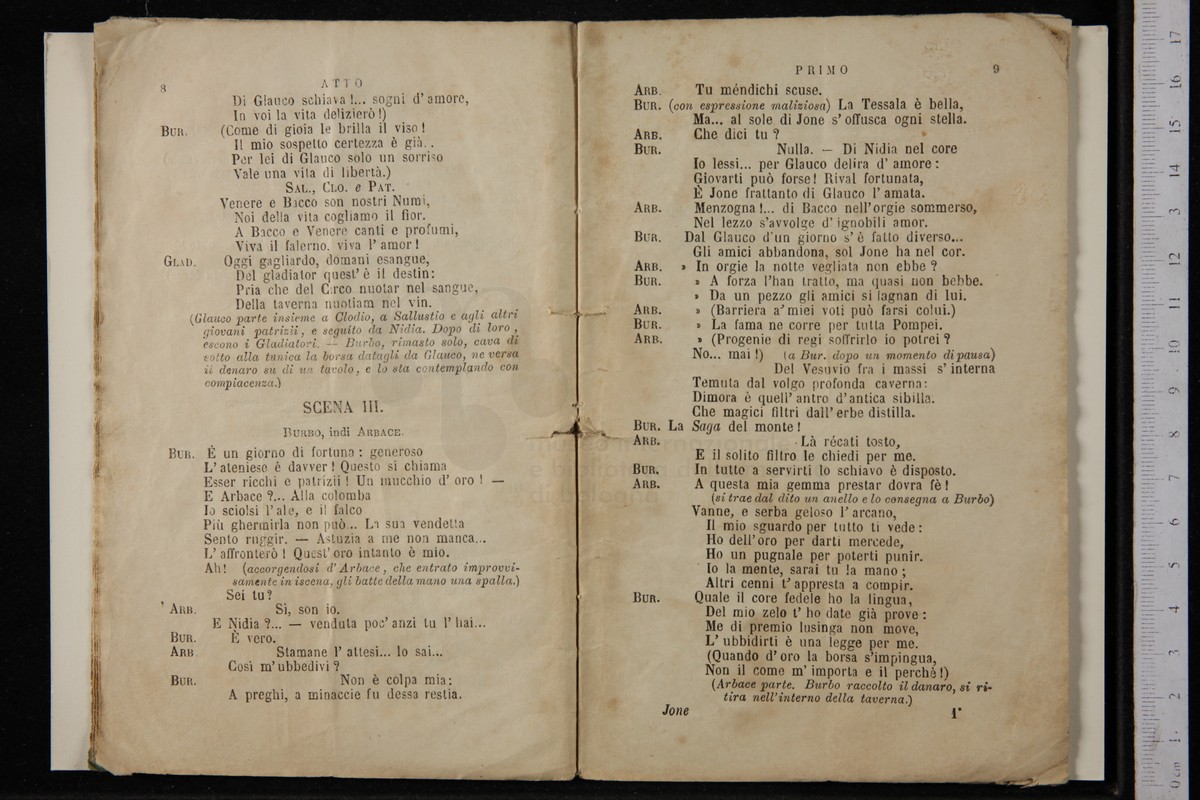 8
ATTO
Di Glauco schiava!... sogni d'amore,
In voi la vita delizierò!)
BUR. (Come di gioia le brilla il viso!
Il mio sospetto certezza è già..
Per lei di Glauco solo un sorriso
Vale una vita di libertà.)
SAL., CLO. e PAT.
Venere e Bacco son nostri Numi,
Noi della vita cogliamo il fior.
A Bacco e Venere canti e profumi,
Viva il falerno, viva l'amor!
GLAD. Oggi gagliardo, domani esangue,
Del gladiator quest'è il destin:
Pria che del Circo nuotar nel sangue,
Della taverna nuotiam nel vin.
(Glauco parte insieme a Clodio, a Sallustio e agli altri
giovani patrizii, e seguito da Nidia. Dopo di loro,
escono i Gladiatori. — Burbo, rimasto solo, cava di
sotto alla tunica la borsa datagli da Glauco, ne versa
il denaro su di un tavolo, e lo sta contemplando con
compiacenza.)
SCENA III.
BURBO, indi ARBACE.
BUR. È un giorno di fortuna: generoso
L'ateniese è davver! Questo si chiama
Esser ricchi e patrizii! Un mucchio d'oro! —
E Arbace?... Alla colomba
Io sciolsi l'ale, e il falco
Più ghermirla non può... La sua vendetta
Sento ruggir. — Astuzia a me non manca...
L'affronterò! Quest'oro intanto è mio.
Ah! (accorgendosi d'Arbace, che entrato improvvi-
samente in iscena, gli batte della mano una spalla.)
Sei tu?
ARB. Sì, son io.
E Nidia?... — venduta poc'anzi tu l'hai...
BUR. È vero.
ARB. Stamane l'attesi... lo sai...
Così m'ubbedivi?
BUR. Non è colpa mia:
A preghi, a minaccie fu dessa restia.
PRIMO
9
ARB. Tu méndichi scuse.
BUR. (con espressione maliziosa) La Tessala è bella,
Ma... al sole di Jone s'offusca ogni stella.
ARB. Che dici tu?
BUR. Nulla. — Di Nidia nel core
Io lessi... per Glauco delira d'amore:
Giovarti può forse! Rival fortunata,
È Jone frattanto di Glauco l'amata.
ARB. Menzogna!... di Bacco nell'orgie sommerso,
Nel lezzo s'avvolge d'ignobili amor.
BUR. Dal Glauco d'un giorno s'è fatto diverso...
Gli amici abbandona, sol Jone ha nel cor.
ARB. » In orgie la notte vegliata non ebbe?
BUR. » A forza l'han tratto, ma quasi non bebbe.
» Da un pezzo gli amici si lagnan di lui.
ARB. » (Barriera a' miei voti può farsi colui.)
BUR. » La fama ne corre per tutta Pompei.
ARB. » (Progenie di regi soffrirlo io potrei?
No... mai!) (a Bur. dopo un momento di pausa)
Del Vesuvio fra i massi s'interna
Temuta dal volgo profonda caverna:
Dimora è quell'antro d'antica sibilla.
Che magici filtri dall'erbe distilla.
BUR. La Saga del monte!
ARB. Là récati tosto,
E il solito filtro le chiedi per me.
BUR. In tutto a servirti lo schiavo è disposto.
ARB. A questa mia gemma prestar dovra fè!
(si trae dal dito un anello e lo consegna a Burbo)
Vanne, e serba geloso l'arcano,
Il mio sguardo per tutto ti vede:
Ho dell'oro per darti mercede,
Ho un pugnale per poterti punir.
Io la mente, sarai tu la mano;
Altri cenni t'appresta a compir.
BUR. Quale il core fedele ho la lingua,
Del mio zelo t'ho date già prove:
Me di premio lusinga non move,
L'ubbidirti è una legge per me.
(Quando d'oro la borsa s'impingua,
Non il come m'importa e il perchè!)
(Arbace parte. Burbo raccolto il danaro, si ri-
tira nell'interno della taverna.)
Jone 1*
0 cm 1 2 3 4 5 6 7 8 9 10 11 12 13 14 15 16 17